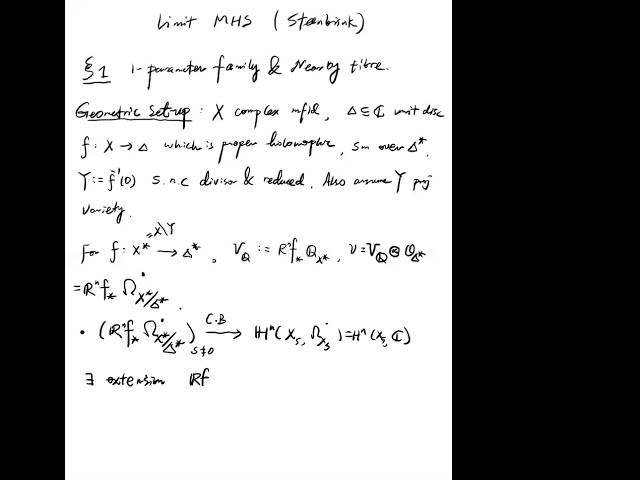 Limit MHS (Steenbrink)
§1 1-parameter family & Nearby fibre.
Geometric Set-up : X complex mfld, Δ⊆ℂ unit disc
f : X → Δ which is proper holomophic, sm over Δ*.
Y := f⁻¹(0) s.n.c divisor & reduced. Also assume Y proj
variety.
=X\Y
For f: X* → Δ*, V_Q := Rⁿf_* Q_X*, V = V_Q ⊗ O_Δ*
= ℝⁿf_* Ω^•_X*/Δ*.
• (ℝⁿf_* Ω^•_X*/Δ*)_s≠0 C.B → ℍⁿ(X_s, Ω^•_X_s) = Hⁿ(X_s, ℂ)
∃ extension ℝf